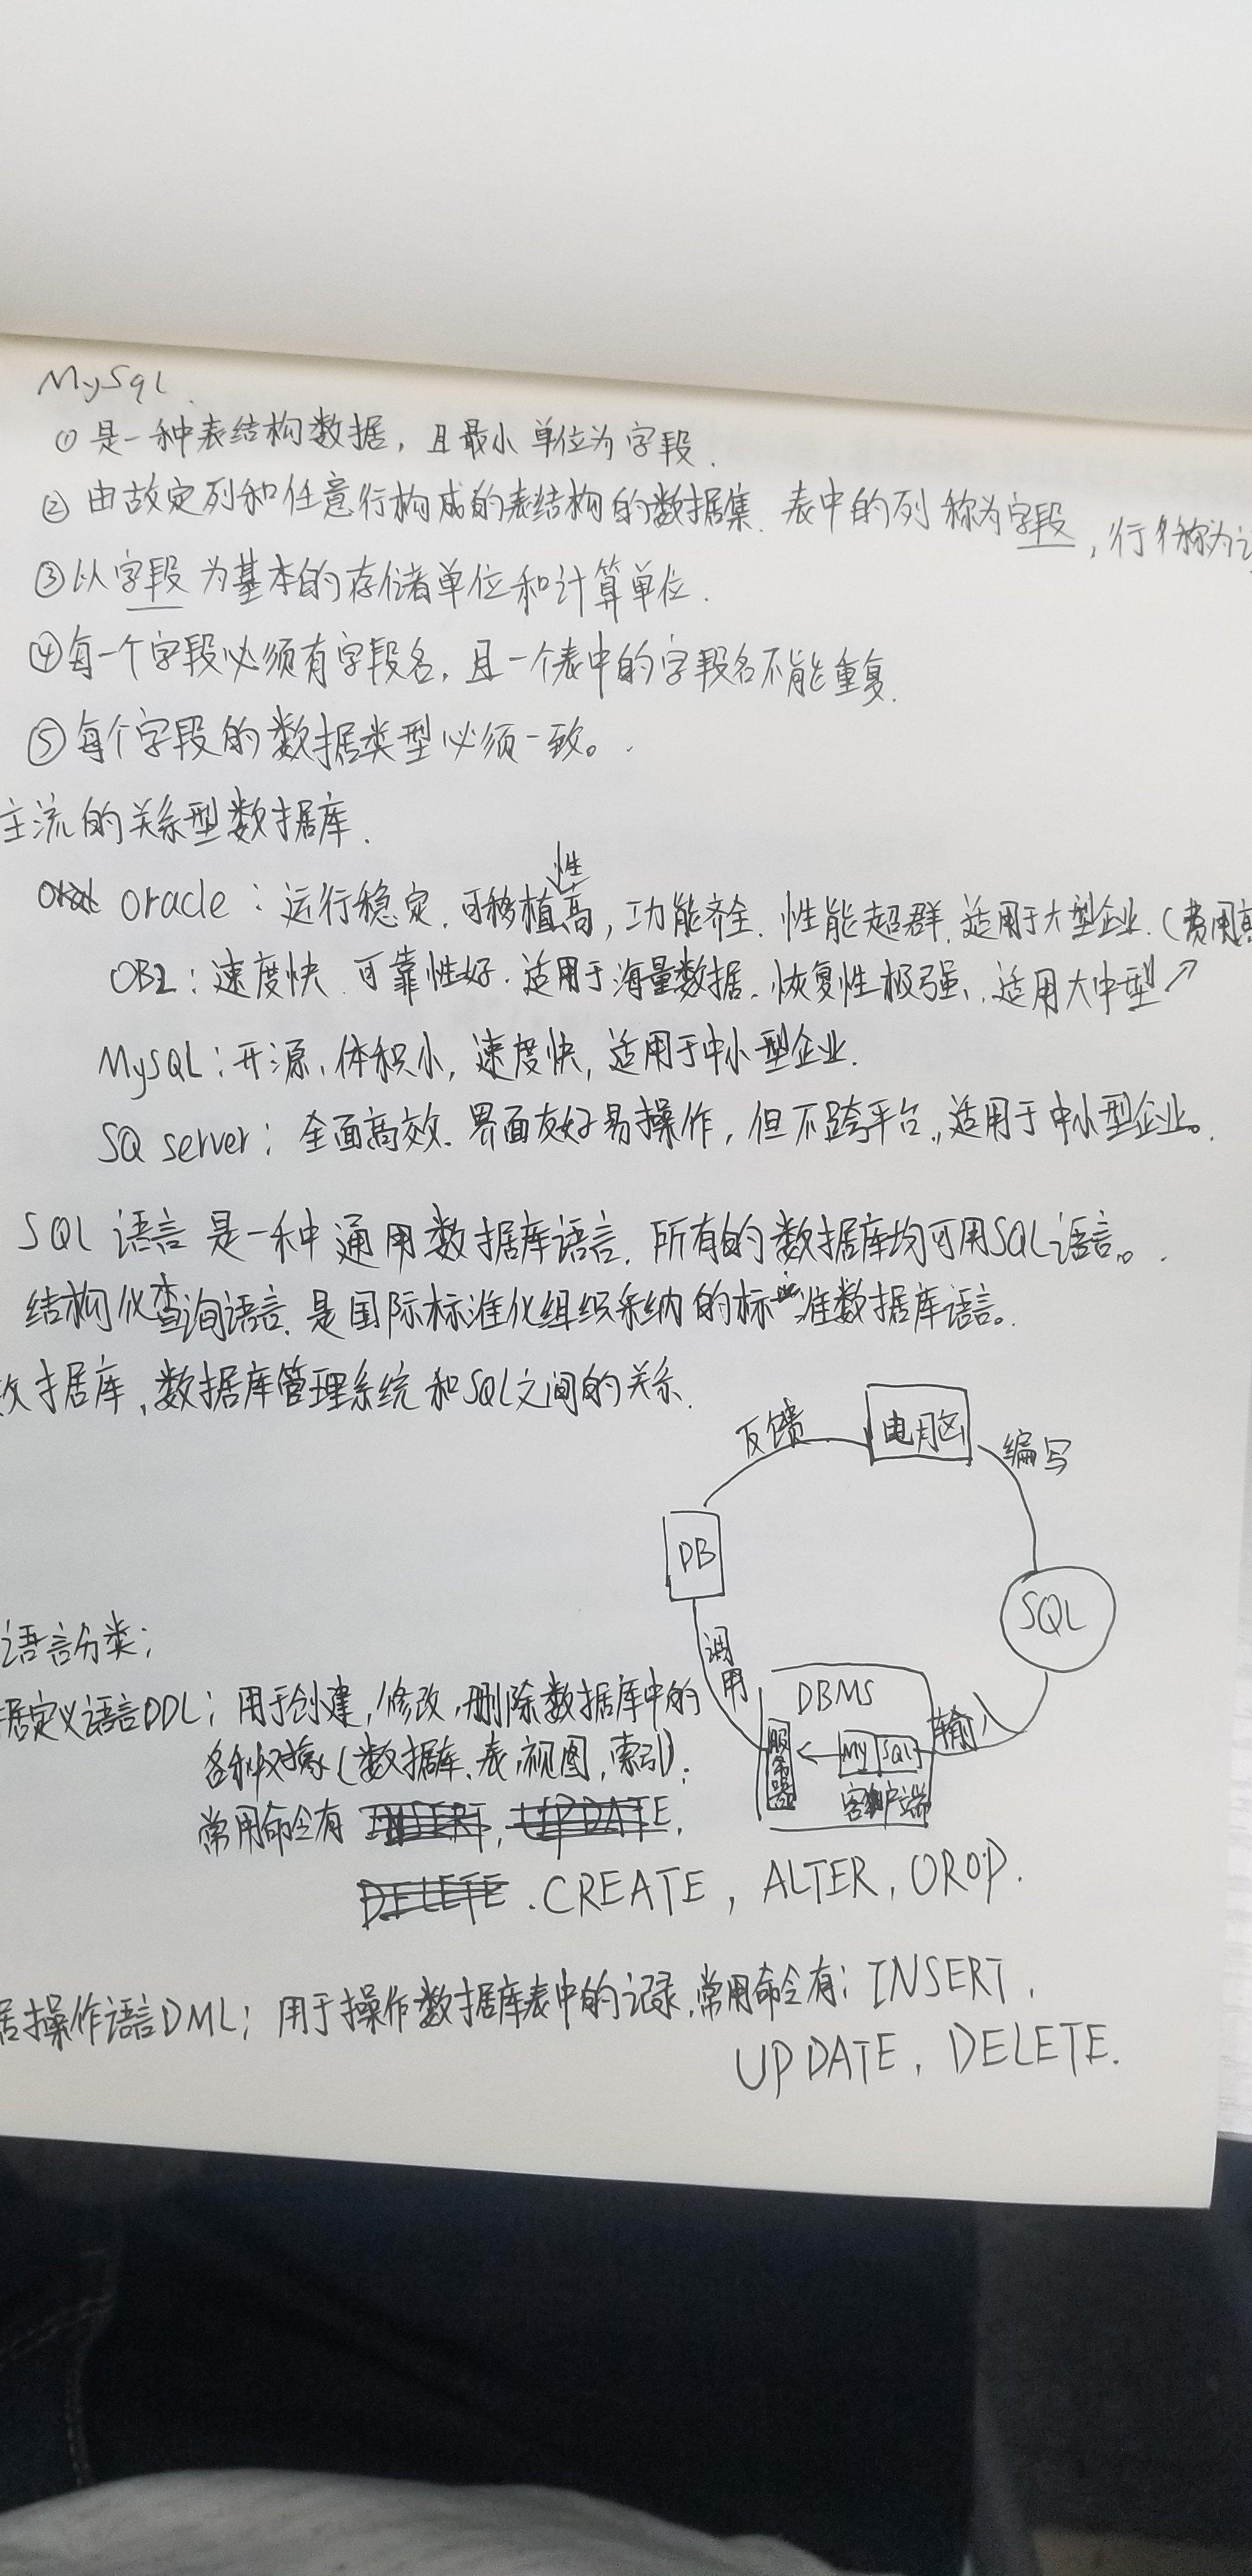 MySql
① 是一种表结构数据，且最小单位为字段.
② 由故定列和任意行构成的表结构的数据集. 表中的列称为字段，行称为
③ 以字段为基本的存储单位和计算单位.
④ 每一个字段必须有字段名，且一个表中的字段名不能重复.
⑤ 每个字段的数据类型必须一致。
主流的关系型数据库.
oracle：运行稳定. 可移植性高，功能齐全. 性能超群. 适用于大型企业.（费用
OB2：速度快. 可靠性好. 适用于海量数据. 恢复性极强、适用大中型↗
MySQL：开源、体积小，速度快，适用于中小型企业.
SQ server：全面高效. 界面友好易操作，但不跨平台，适用于中小型企业。
SQL 语言 是一种通用数据库语言. 所有的数据库均可用SQL语言。
结构化查询语言. 是国际标准化组织采纳的标准数据库语言。
据库、数据库管理系统和SQL之间的关系.
反馈
电脑
编写
DB
SQL
调用
DBMS
服务器
My SQL
输入
客户端
语言分类：
据定义语言DDL：用于创建，修改，删除数据库中的
各种对象（数据库、表，视图，索引）；
常用命令有 INSERT, UPDATE,
DELETE. CREATE, ALTER, OROP.
据操作语言DML：用于操作数据库表中的记录，常用命令有：INSERT,
UPDATE, DELETE.